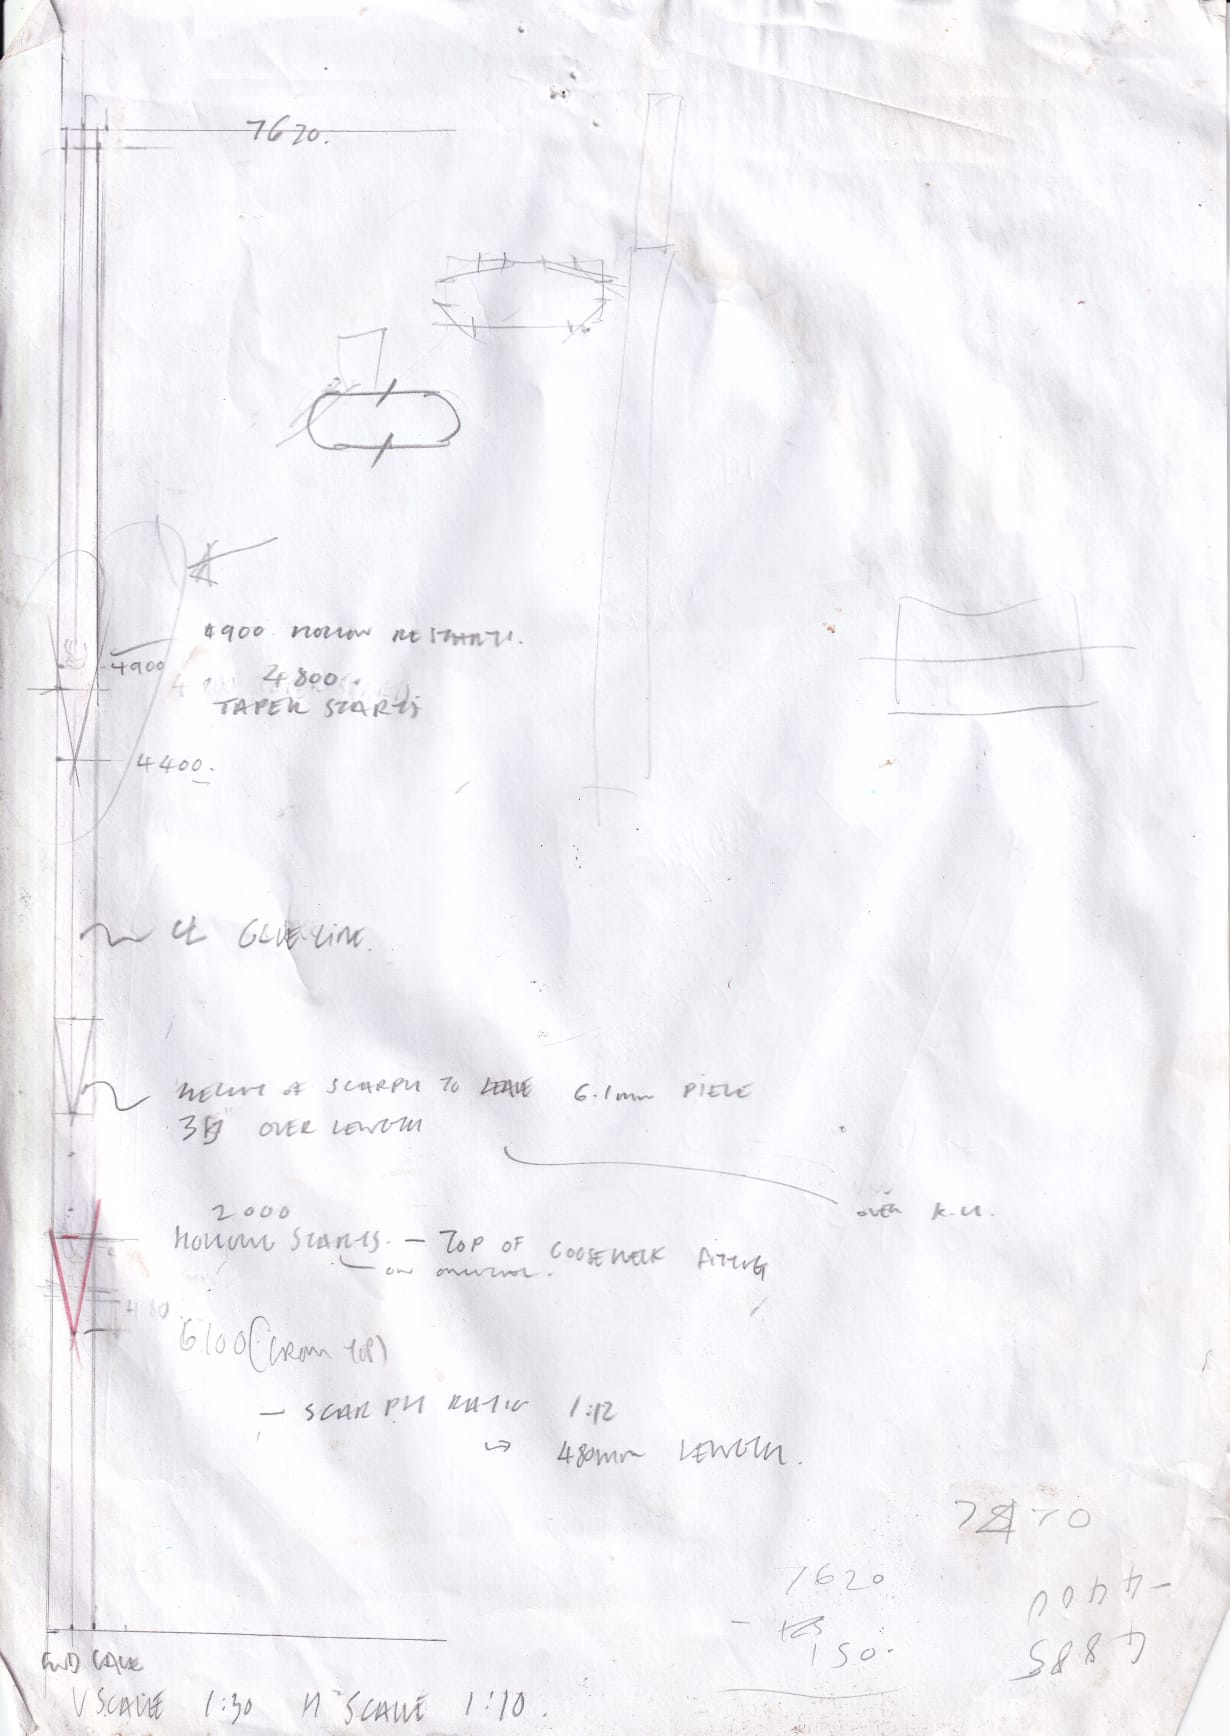 7620.
4900 HOLLOW RESTARTS.
4900
4800.
TAPER STARTS
4400.
GLUE LINE.
HEIGHT OF SCARPH TO LEAVE 6.1mm PIECE
OVER LENGTH
OVER
2000
HOLLOW STARTS. — TOP OF GOOSENECK FITTING
ON ORIGINAL.
480
6100 (FROM TOP)
— SCARPH RATIO 1:12
↳ 480mm LENGTH.
7620
-
150.
-4400
V SCALE 1:30 H SCALE 1:10.